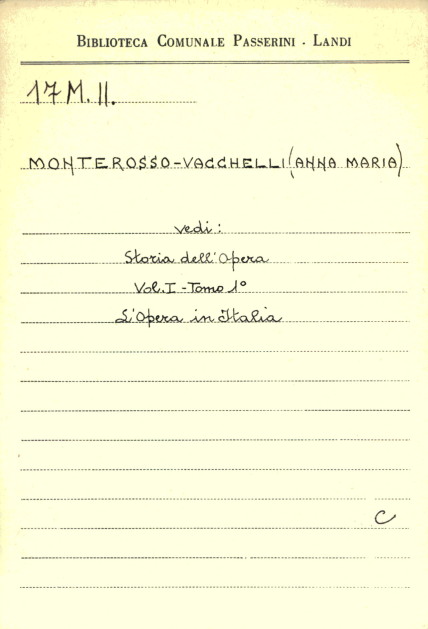 BIBLIOTECA COMUNALE PASSERINI - LANDI
17 M. II.
MONTEROSSO-VACCHELLI (ANNA MARIA)
vedi:
Storia dell'Opera
Vol. I - Tomo 1°
L'Opera in Italia
C